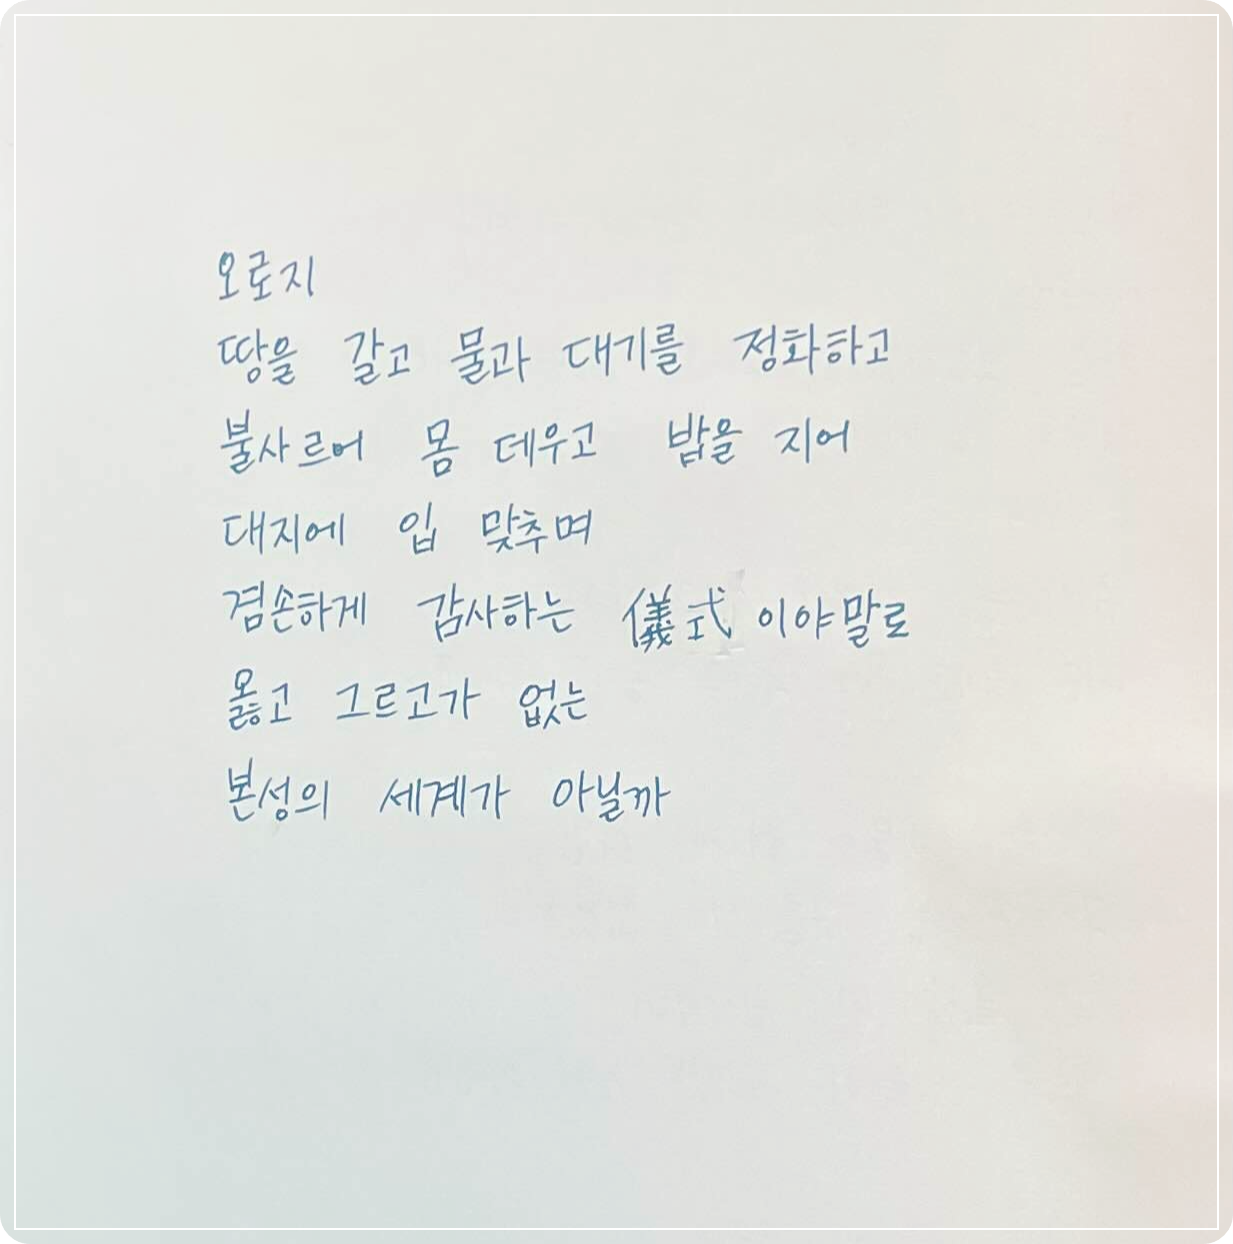 오로지
땅을 갈고 물과 대기를 정화하고
불사르어 몸 데우고 밥을 지어
대지에 입 맞추며
겸손하게 감사하는 儀式이야말로
옳고 그르고가 없는
본성의 세계가 아닐까